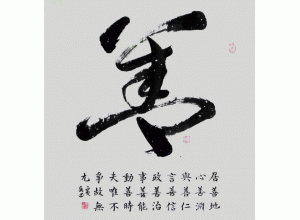 善
居善地
心善渊
與善仁
言善信
政善治
事善能
動善時
夫唯不
爭故無
尤